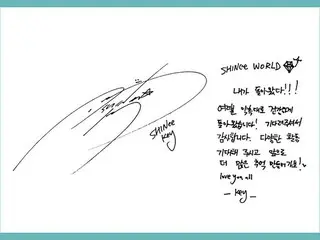 SHINee
KEY
SHINee WORLD
내가 돌아왔다!!!
여러분 약속대로 건강하게
돌아왔습니다! 기다려주셔서
감사합니다. 다양한 활동
기대해 주시고 앞으로
더 많은 추억 만들어가요!
love you all
- Key -